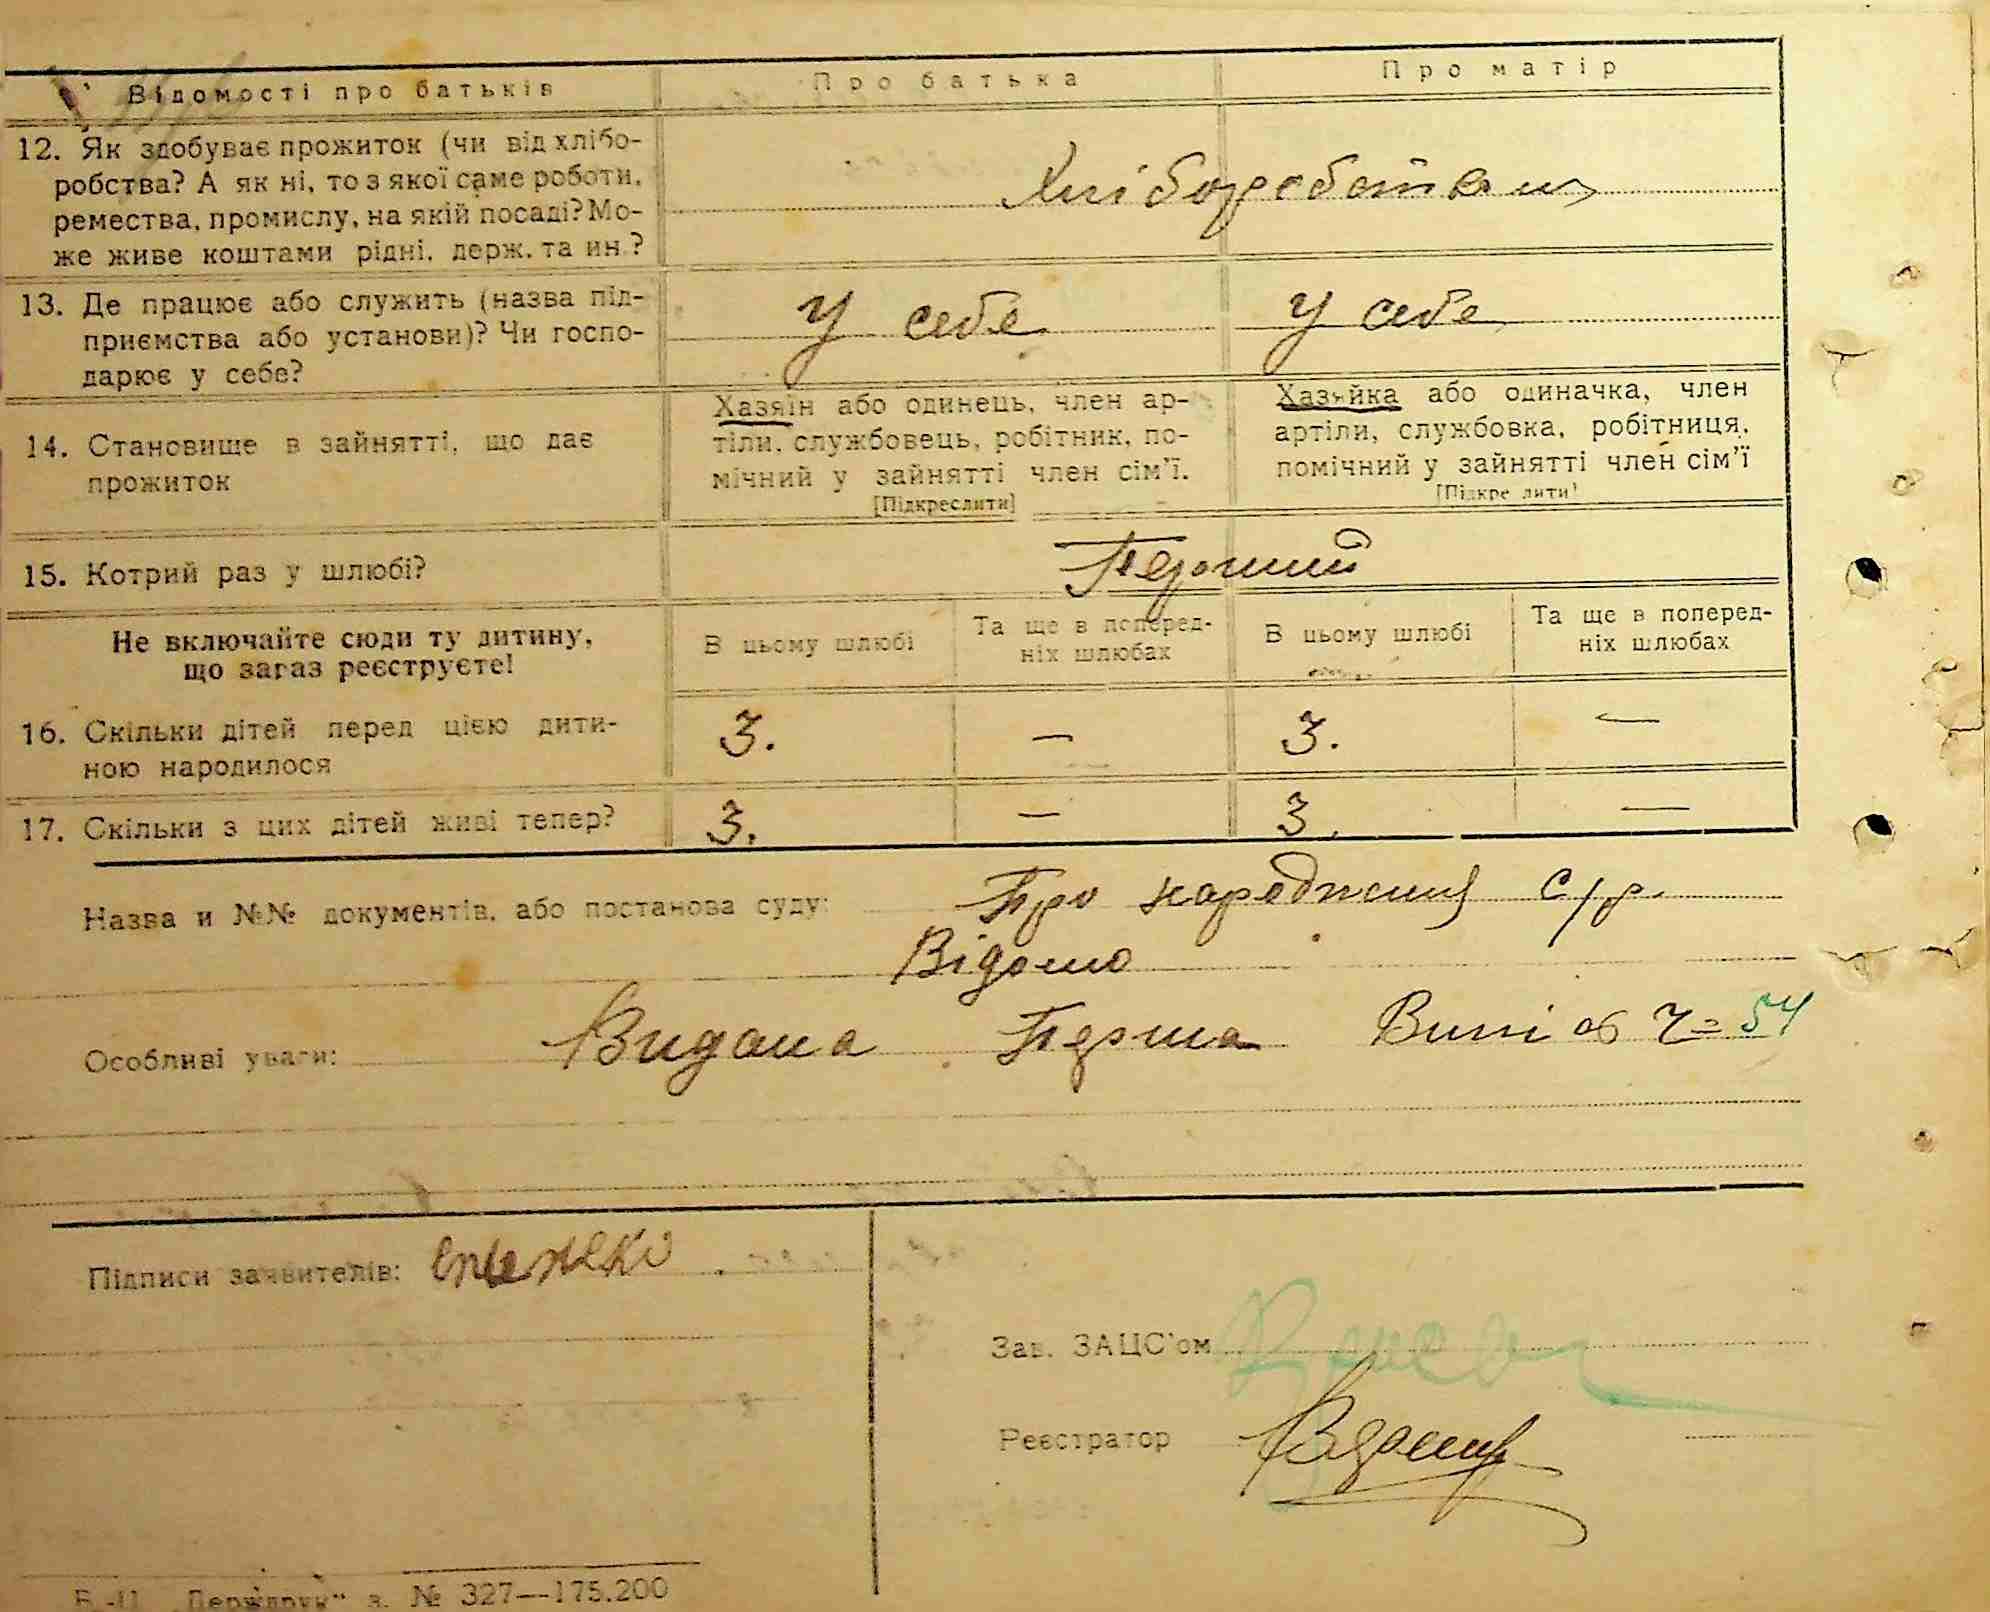 Відомості про батьків
Про батька
Про матір
12. Як здобуває прожиток (чи від хлібо-
робства? А як ні, то з якої саме роботи,
ремества, промислу, на якій посаді? Мо-
же живе коштами рідні, держ. та ин.?
13. Де працює або служить (назва під-
приємства або установи)? Чи госпо-
дарює у себе?
У себе
У себе
14. Становище в зайнятті, що дає
прожиток
Хазяїн або одинець, член ар-
тіли, службовець, робітник, по-
мічний у зайнятті член сім'ї.
[Підкреслити]
Хазяйка або одиначка, член
артіли, службовка, робітниця,
помічний у зайнятті член сім'ї
[Підкре лити]
15. Котрий раз у шлюбі?
Перший
Не включайте сюди ту дитину,
що зараз реєструєте!
В цьому шлюбі
Та ще в поперед-
ніх шлюбах
В цьому шлюбі
Та ще в поперед-
ніх шлюбах
16. Скільки дітей перед цією дити-
ною народилося
3. — 3. —
17. Скільки з цих дітей живі тепер?
3. — 3. —
Назва и №№ документів, або постанова суду: Про с/р.
Відомо
Особливі уваги: Видана Перша 54
Підписи заявителів:
Зав. ЗАЦС'ом
Реєстратор
Б.-Ц. „Держдрук" з. № 327—175.200